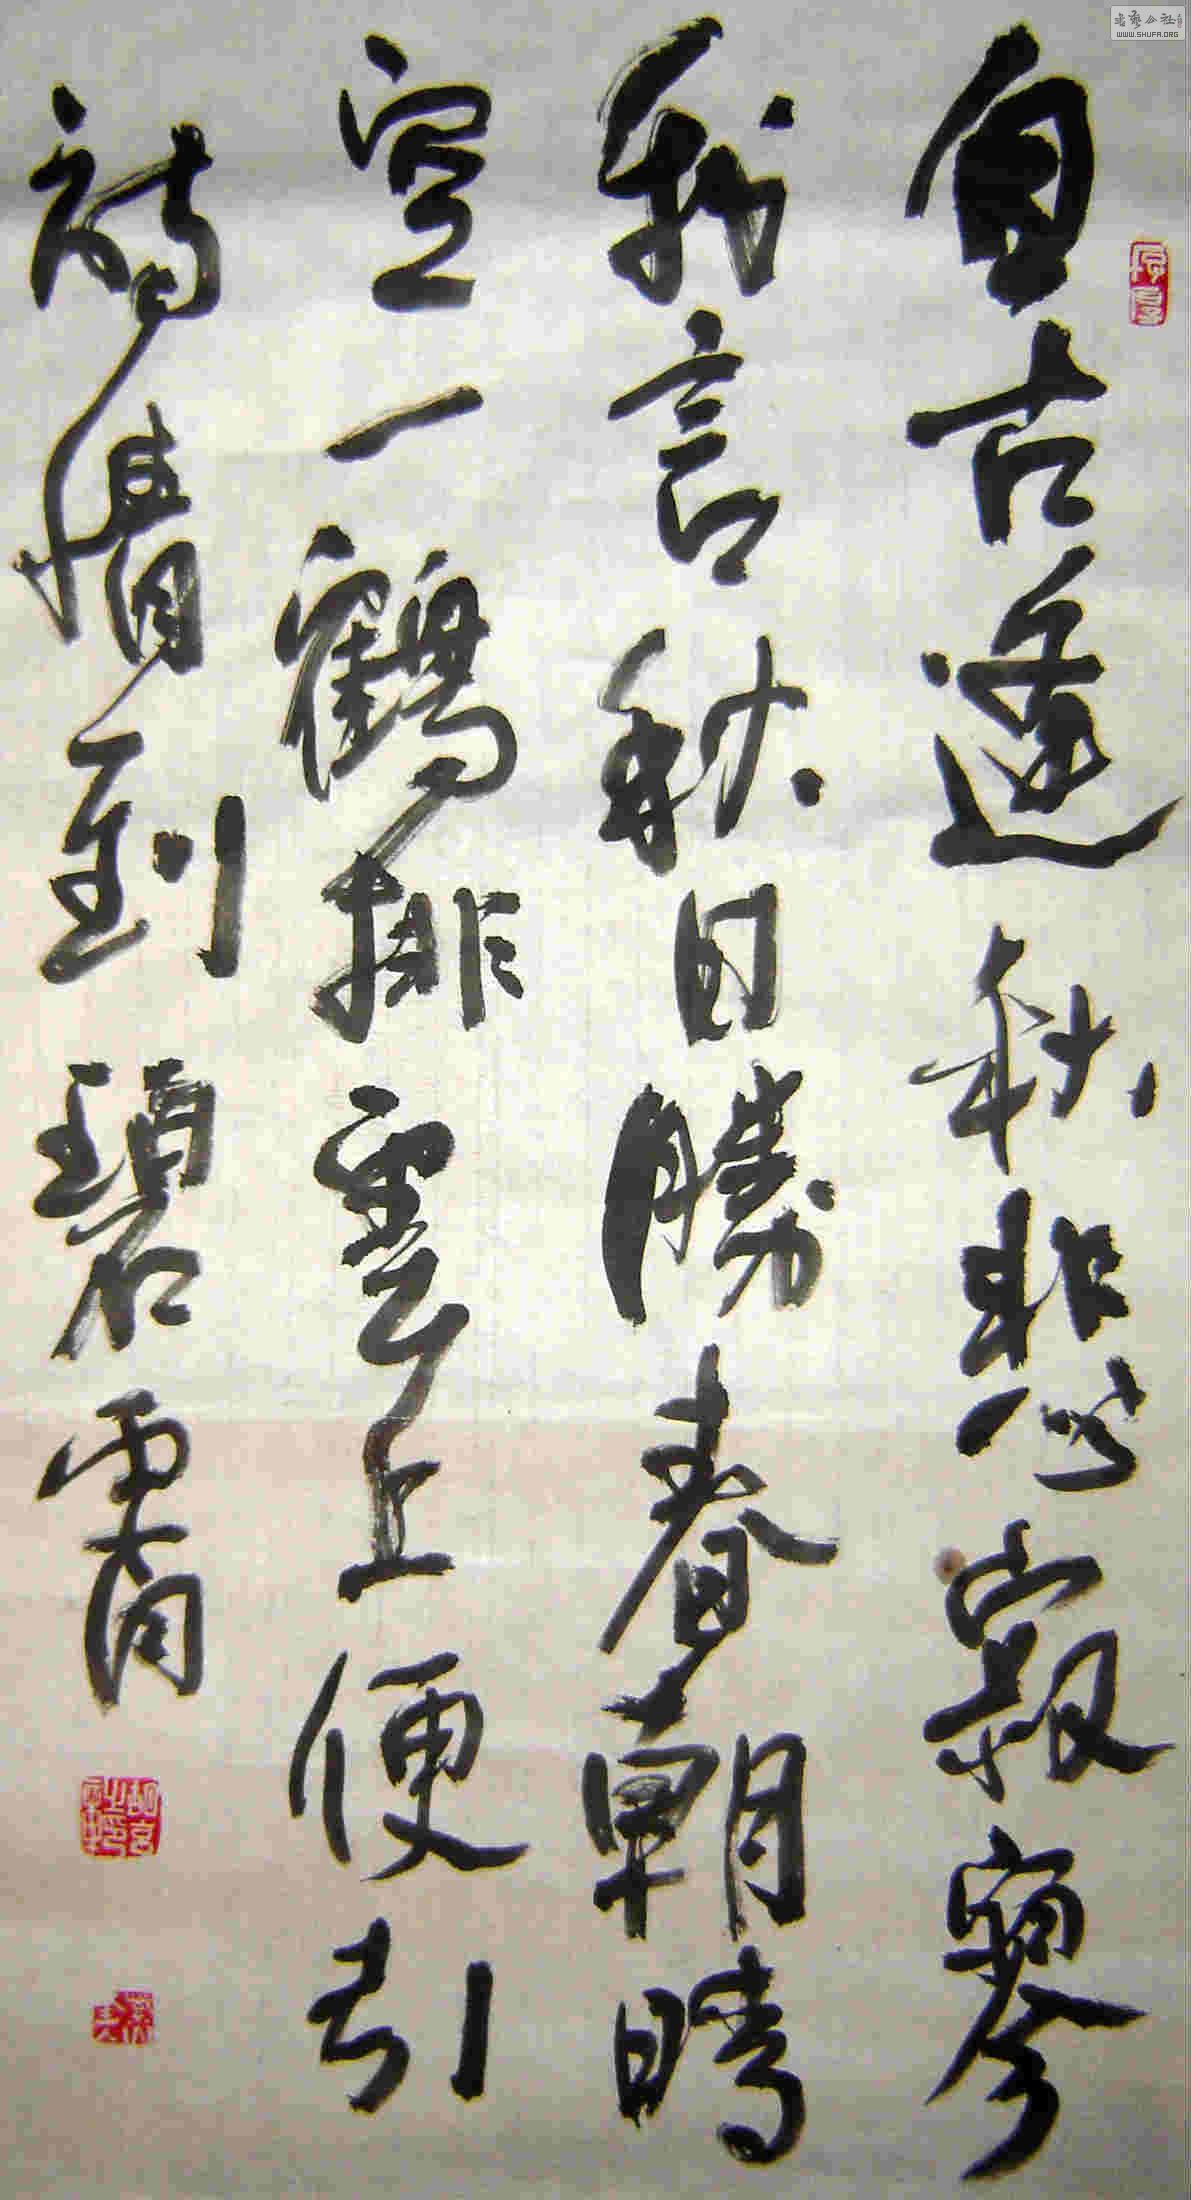 自古逢秋悲寂寥
我言秋日勝春朝晴
空一鶴排雲上便引
詩情到碧霄
WWW.SHUFA.ORG